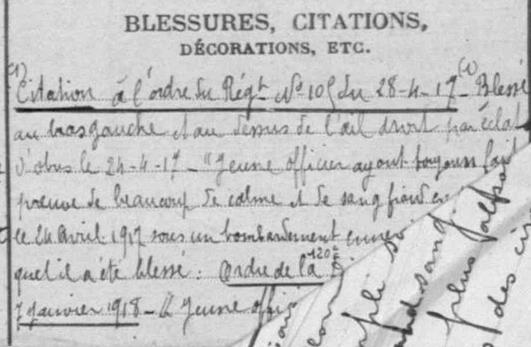 BLESSURES, CITATIONS,
DÉCORATIONS, ETC.
(1) Citation à l'ordre du Régt No 105 du 28-4-17 (1) Blessé
au bras gauche et au dessus de l'œil droit par éclat
d'obus le 24-4-17 - "Jeune officier ayant toujours fait
preuve de beaucoup de calme et de sang froid
le 24 Avril 1917 sous un bombardement
quel il a été blessé. Ordre de la 120e
7 Janvier 1918 - "Jeune offi
sang
plus
des